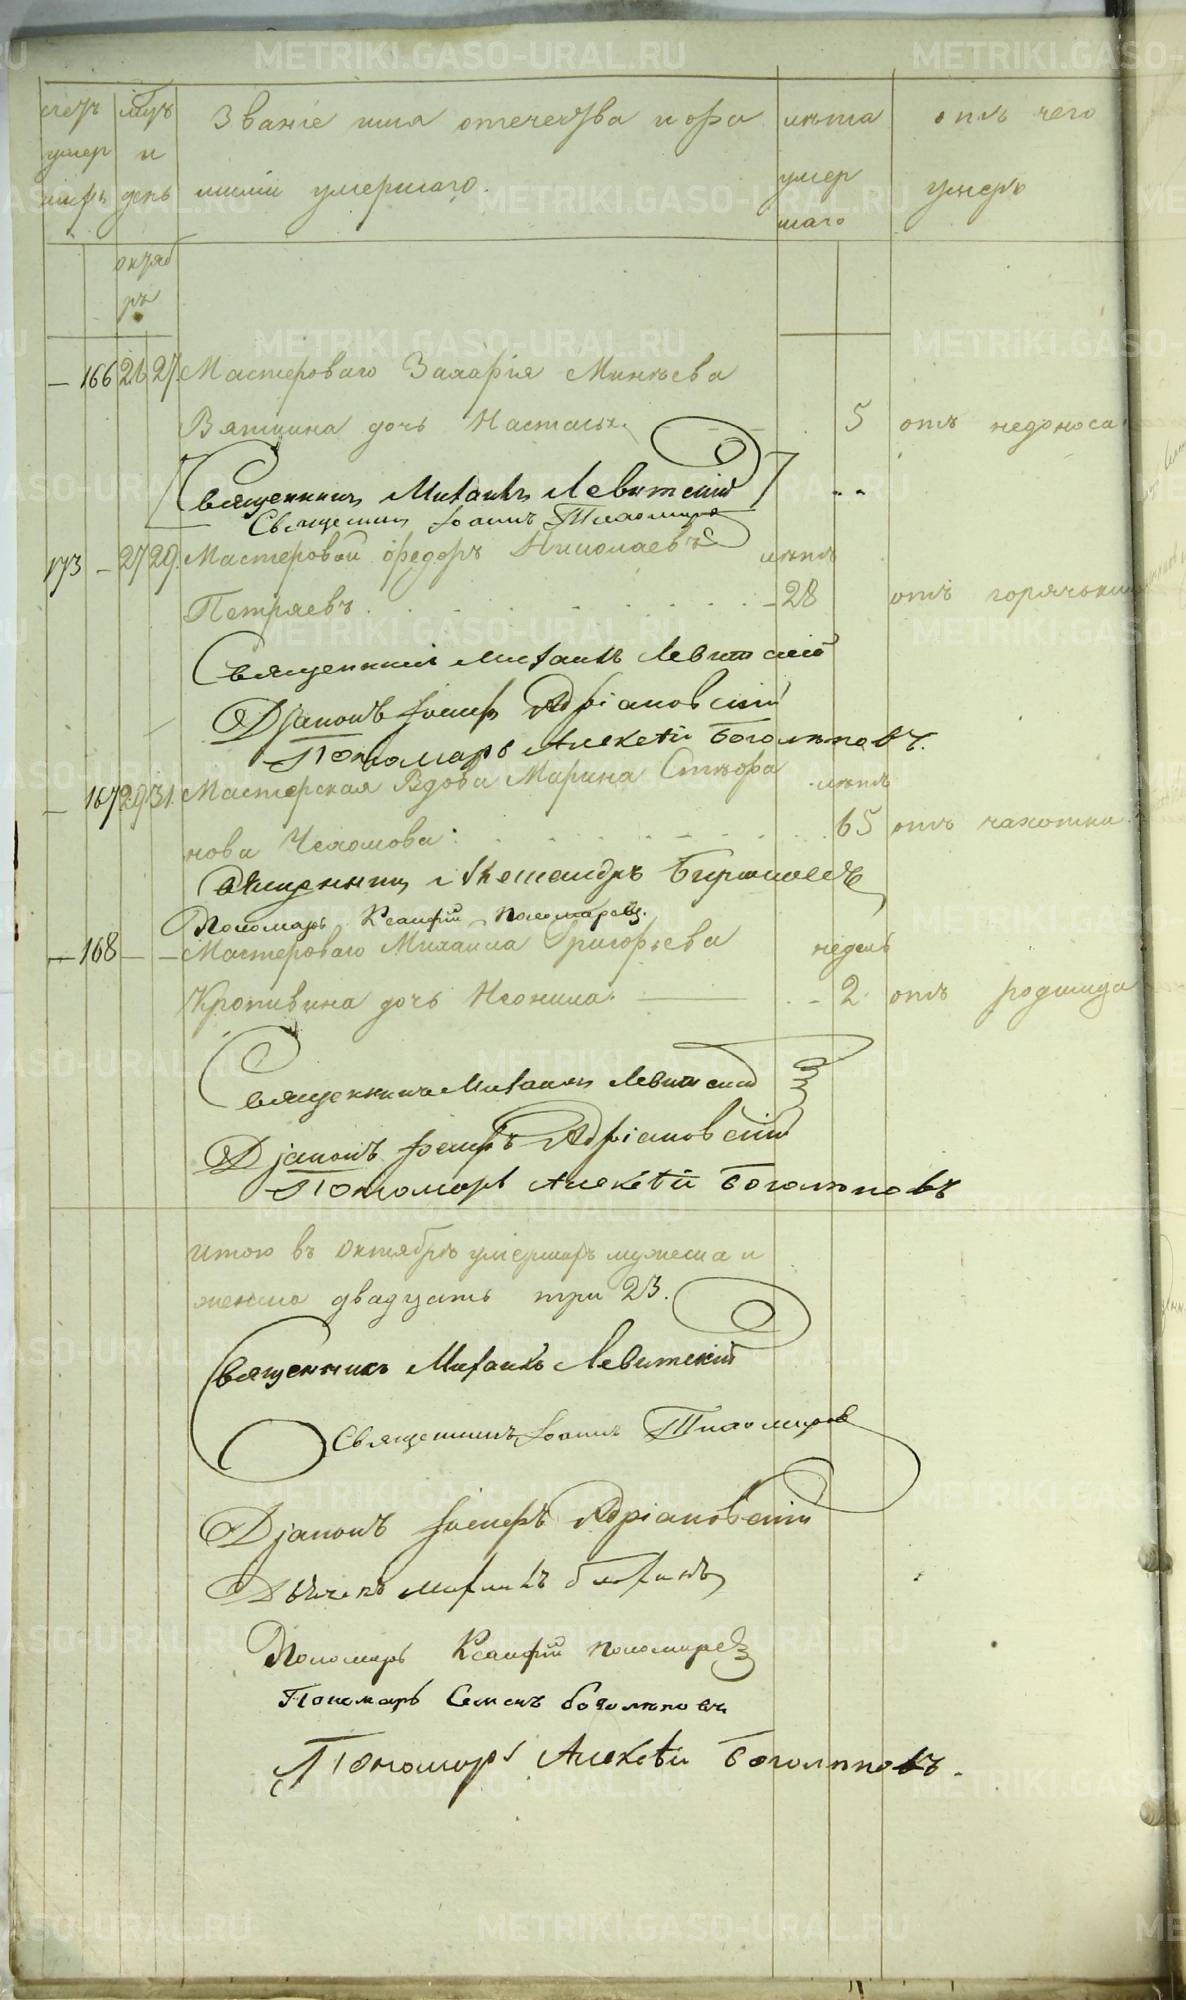 счетъ мцъ Званіе имя отечества и фа лѣта отъ чего
умер и
шихъ день миліи умершаго. умер умеръ
шаго
октяб
рь
166 26 27. Мастероваго Захарія Минѣева
Вяткина дочь Настасья. 5 отъ недоноса.
Священникъ Михаилъ Левитскій
Священникъ Іоаннъ Тихомировъ
173 27 29. Мастеровой Ѳедоръ Николаевъ лѣтъ
Петряевъ 28 отъ горячьки
Священникъ Михаилъ Левитскій
Діаконъ Іосифъ Адріановскій
Пономарь Алексѣй Боголѣповъ.
167 29 31. Мастерская Вдова Марина Стефа лѣтъ
нова 65 отъ чахотки.
Священникъ Александръ
Пономарь Ксанфій Пономаревъ.
168 Мастероваго Михаила Григорьева недель
Кропивина дочь Неонила. 2 отъ родимца
Священникъ Михаилъ Левитскій
Діаконъ Іосифъ Адріановскій
Пономарь Алексѣй Боголѣповъ
итого въ Октябрѣ умершихъ мужеска и
женска двадцать три 23.
Священникъ Михаилъ Левитскій
Священникъ Іоаннъ Тихомировъ
Діаконъ Іосифъ Адріановскій
Дьячекъ
Пономарь Ксанфій Пономаревъ
Пономарь Семенъ Боголѣповъ
Пономарь Алексѣй Боголѣповъ.
METRIKI.GASO-URAL.RU